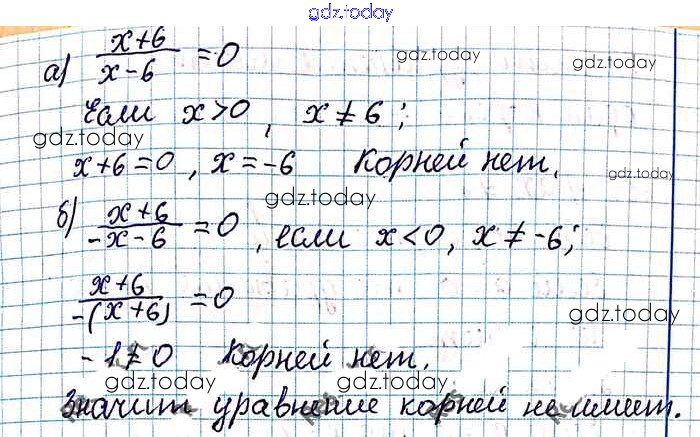 gdz.today
а) x+6 / x-6 = 0
gdz.today
gdz.today
Если x>0, x≠6;
gdz.today
x+6=0, x=-6 Корней нет.
gdz.today
gdz.today
б) x+6 / -x-6 = 0, если x<0, x≠-6;
gdz.today
gdz.today
x+6 / -(x+6) = 0
gdz.today
-1≠0 Корней нет.
gdz.today
gdz.today
Значит уравнение корней не имеет.